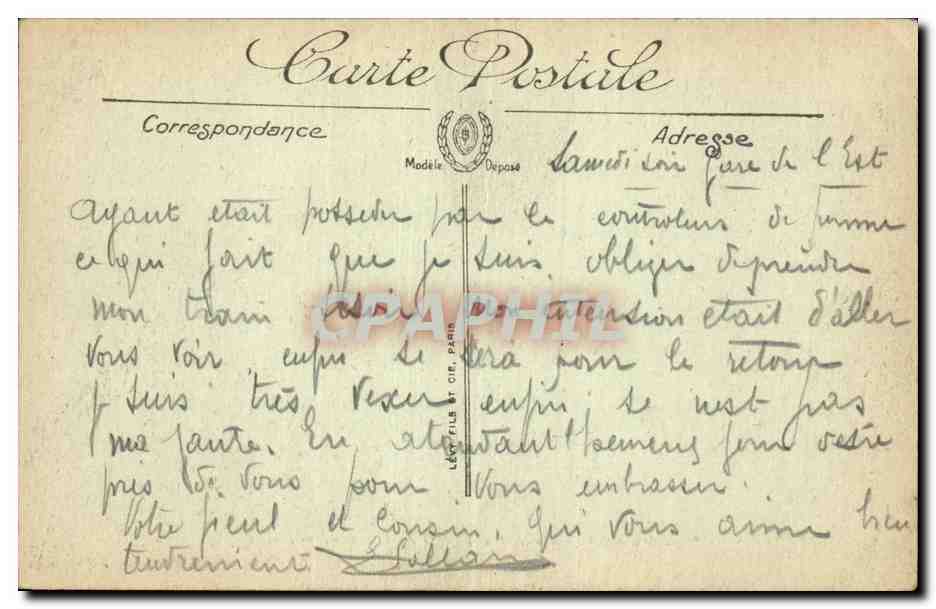 Carte Postale
Correspondance
Adresse
Modèle Déposé
Samedi soir Gare de l'Est
Ayant était posseder par le controleur de
ce qui fait que je suis obliger de prendre
mon train se soir mon intension etait d'aller
vous voir enfin se sera pour le retour
je suis très vexer enfin se nest pas
ma faute. En atendant
près de vous pour vous embrasser.
Votre et Cousin, qui vous aime bien
tendrement
LEVY FILS ET CIE, PARIS
CPAPHIL